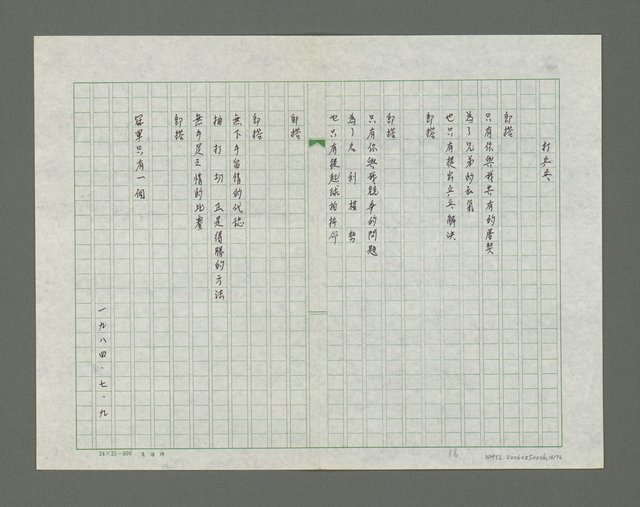 打乒乓
卽搭
只有你與我共有的房契
為了兄弟的和氣
也只有提出乒乓解決
卽搭
卽搭
只有你與我競爭的問題
為了名利權勢
也只有提起球拍拚命
卽搭
卽搭
無下手留情的代誌
抽打切正是得勝的方法
無手足之情的比賽
卽搭
冠軍只有一個
一九八四・七・九
24×25=600
16
NMTL 20060250006,16/76